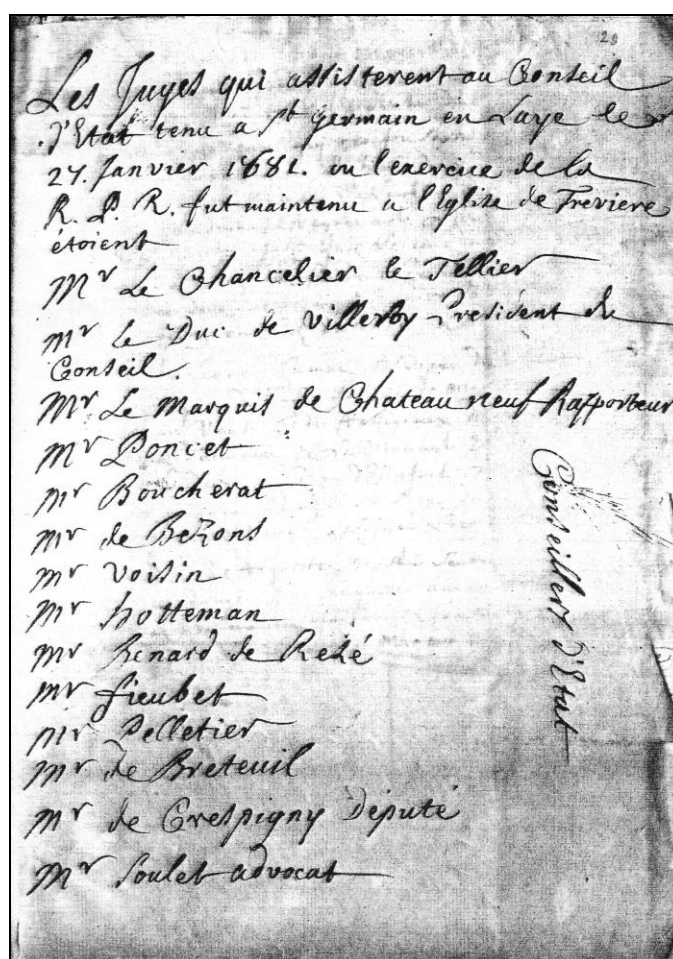 29
Les Juges qui assisterent au Conseil
d'Etat tenu a St germain en Laye le
27. Janvier 1681. ou l'exercice de la
R. P. R. fut maintenu a l'Eglise de Treviere
étoient
Mr Le Chancelier le Tellier
Mr le Duc de Villeroy President du
Conseil.
Mr Le Marquis de Chateauneuf Rapporteur
Mr Poncet
Mr Boucherat
Mr de BeZons
Mr Voisin
Mr hotteman
Mr Benard de Rezé
Mr fieubet
Mr Pelletier
Mr de Breteuil
Mr de Crespigny Député
Mr Soulet advocat
Conseillers d'Etat